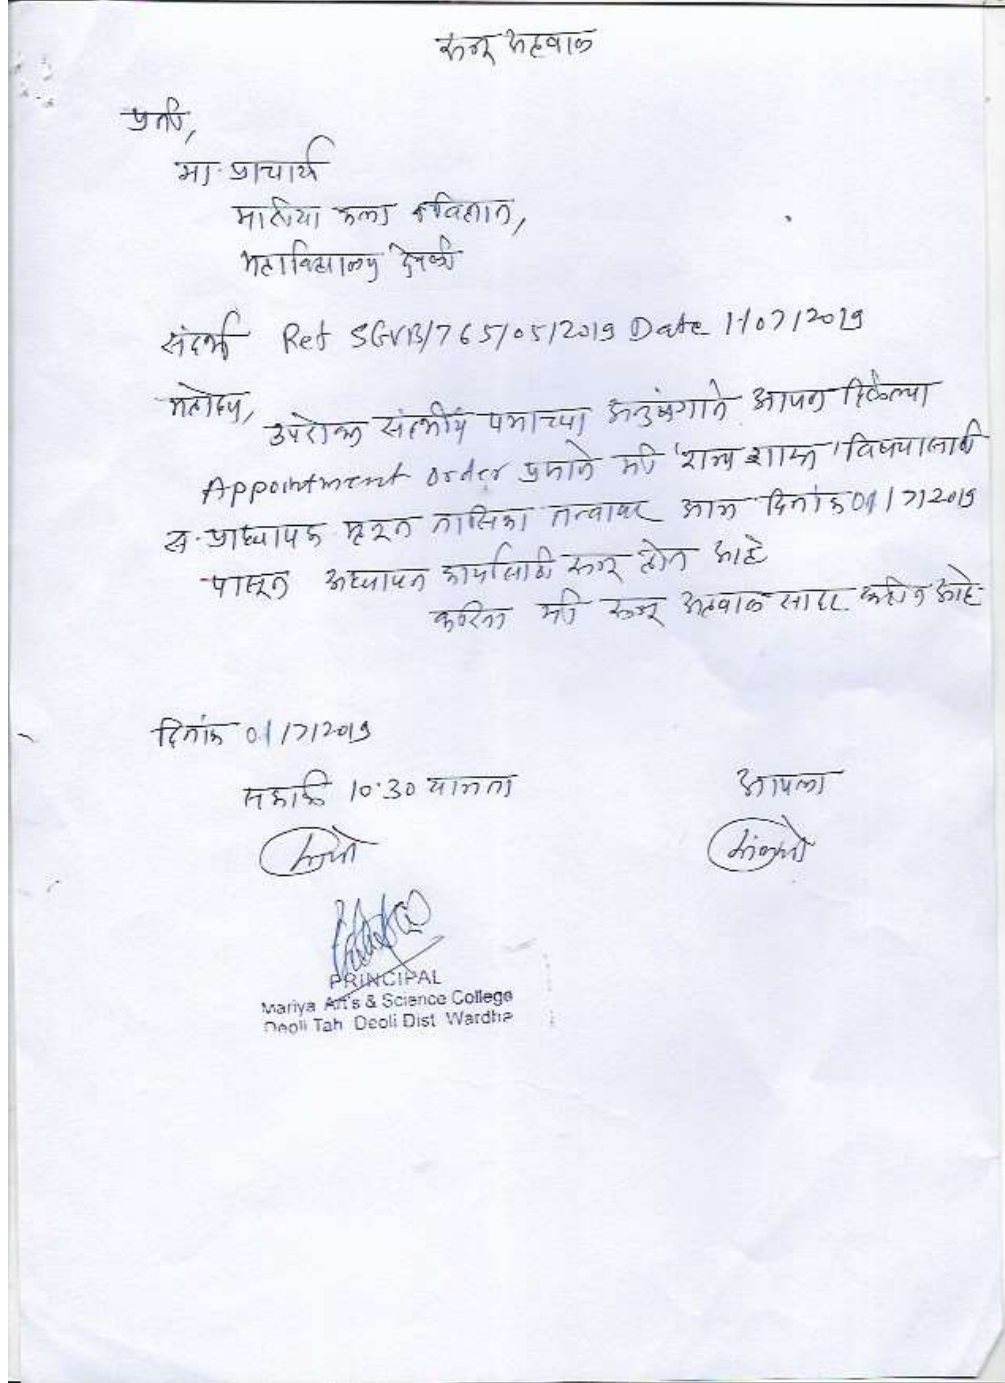 रुजू अहवाल
प्रति,
मा. प्राचार्य
मारीया कला व विज्ञान,
महाविद्यालय देवळी
संदर्भ Ref SGVB/765/05/2019 Date 1/07/2019
महोदय,
उपरोक्त संदर्भीय पत्राच्या अनुषंगाने आपन दिलेल्या
Appointment order प्रमाने मी 'राज्यशास्त्र' विषयासाठी
स. प्राध्यापक म्हणून तासिका तत्वावर आज दिनांक 01/7/2019
पासून अध्यापन कार्यासाठी रुजू होत आहे
करिता मी रुजू अहवाल सादर करीत आहे
दिनांक 01/7/2019
सकाळी 10:30 वाजता
आपला
PRINCIPAL
Mariya Art's & Science College
Deoli Tah Deoli Dist Wardha